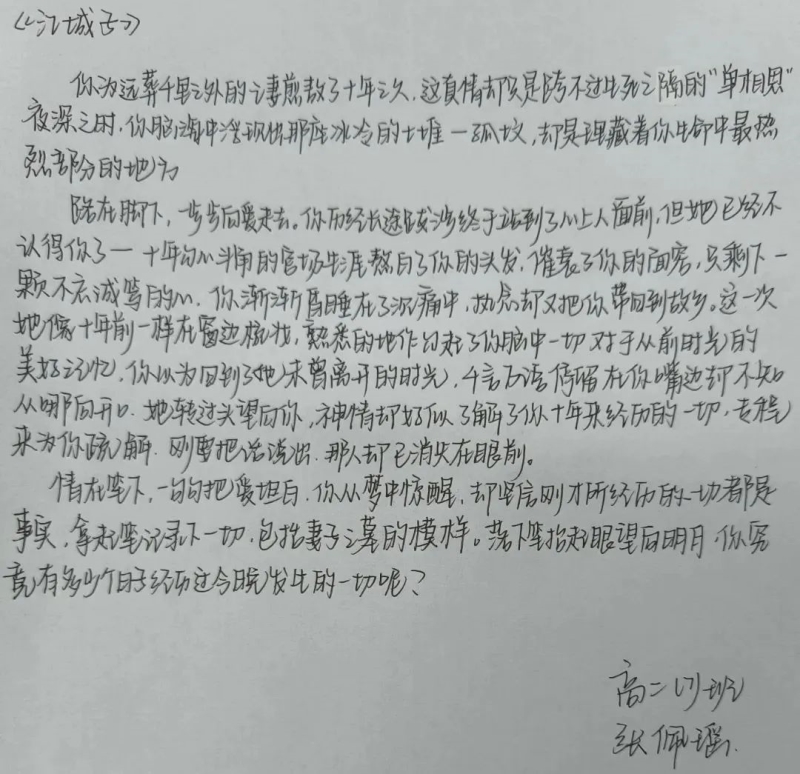 《江城子》
你为远葬千里之外的亡妻煎熬了十年之久，这真情却只是跨不过生死之隔的"单相思"
夜深之时，你脑海中浮现出那座冰冷的土堆一孤坟，却是埋藏着你生命中最热
烈部分的地方
路在脚下，一步步向爱走去。你历经长途跋涉终于站到了心上人面前，但她已经不
认得你了一十年勾心斗角的官场生涯熬白了你的头发，催衰了你的面容，只剩下一
颗不忘诚笃的心，你渐渐昏睡在了沉痛中，执念却又把你带回到故乡。这一次
她像十年前一样在窗边梳妆，熟悉的地作勾起了你脑中一切对于从前时光的
美好记忆，你以为回到了她未曾离开的时光，千言万语停留在你嘴边却不知
从哪句开口。她转过头望向你，神情却好似了解了你十年来经历的一切，专程
来为你疏解．刚要把话说出．那人却已消失在眼前。
情在笔下，一句句把爱坦白．你从梦中惊醒，却坚信刚才所经历的一切都是
事实，拿起笔记录下一切，包括妻子之墓的模样。落下笔抬起眼望向明月，你究
竟有多少个日子经历过今晚发生的一切呢？
高二(1)班
张佩瑶．